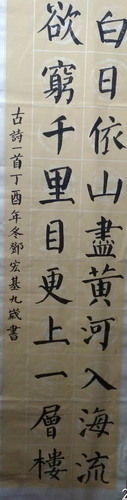 白日依山盡黃河入海流
欲窮千里目更上一層樓
古詩一首丁酉年冬鄧宏基九歲書